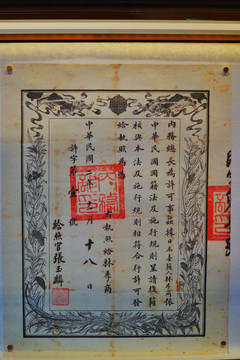 內務總長為許可事茲據日本臺人林季商依
中華民國國籍法及施行規則呈請復籍
核與本法及施行規則相符合行許可發
給執照為
執照給林季商
中華民國十八日
許字第壹號
給照官張玉麟